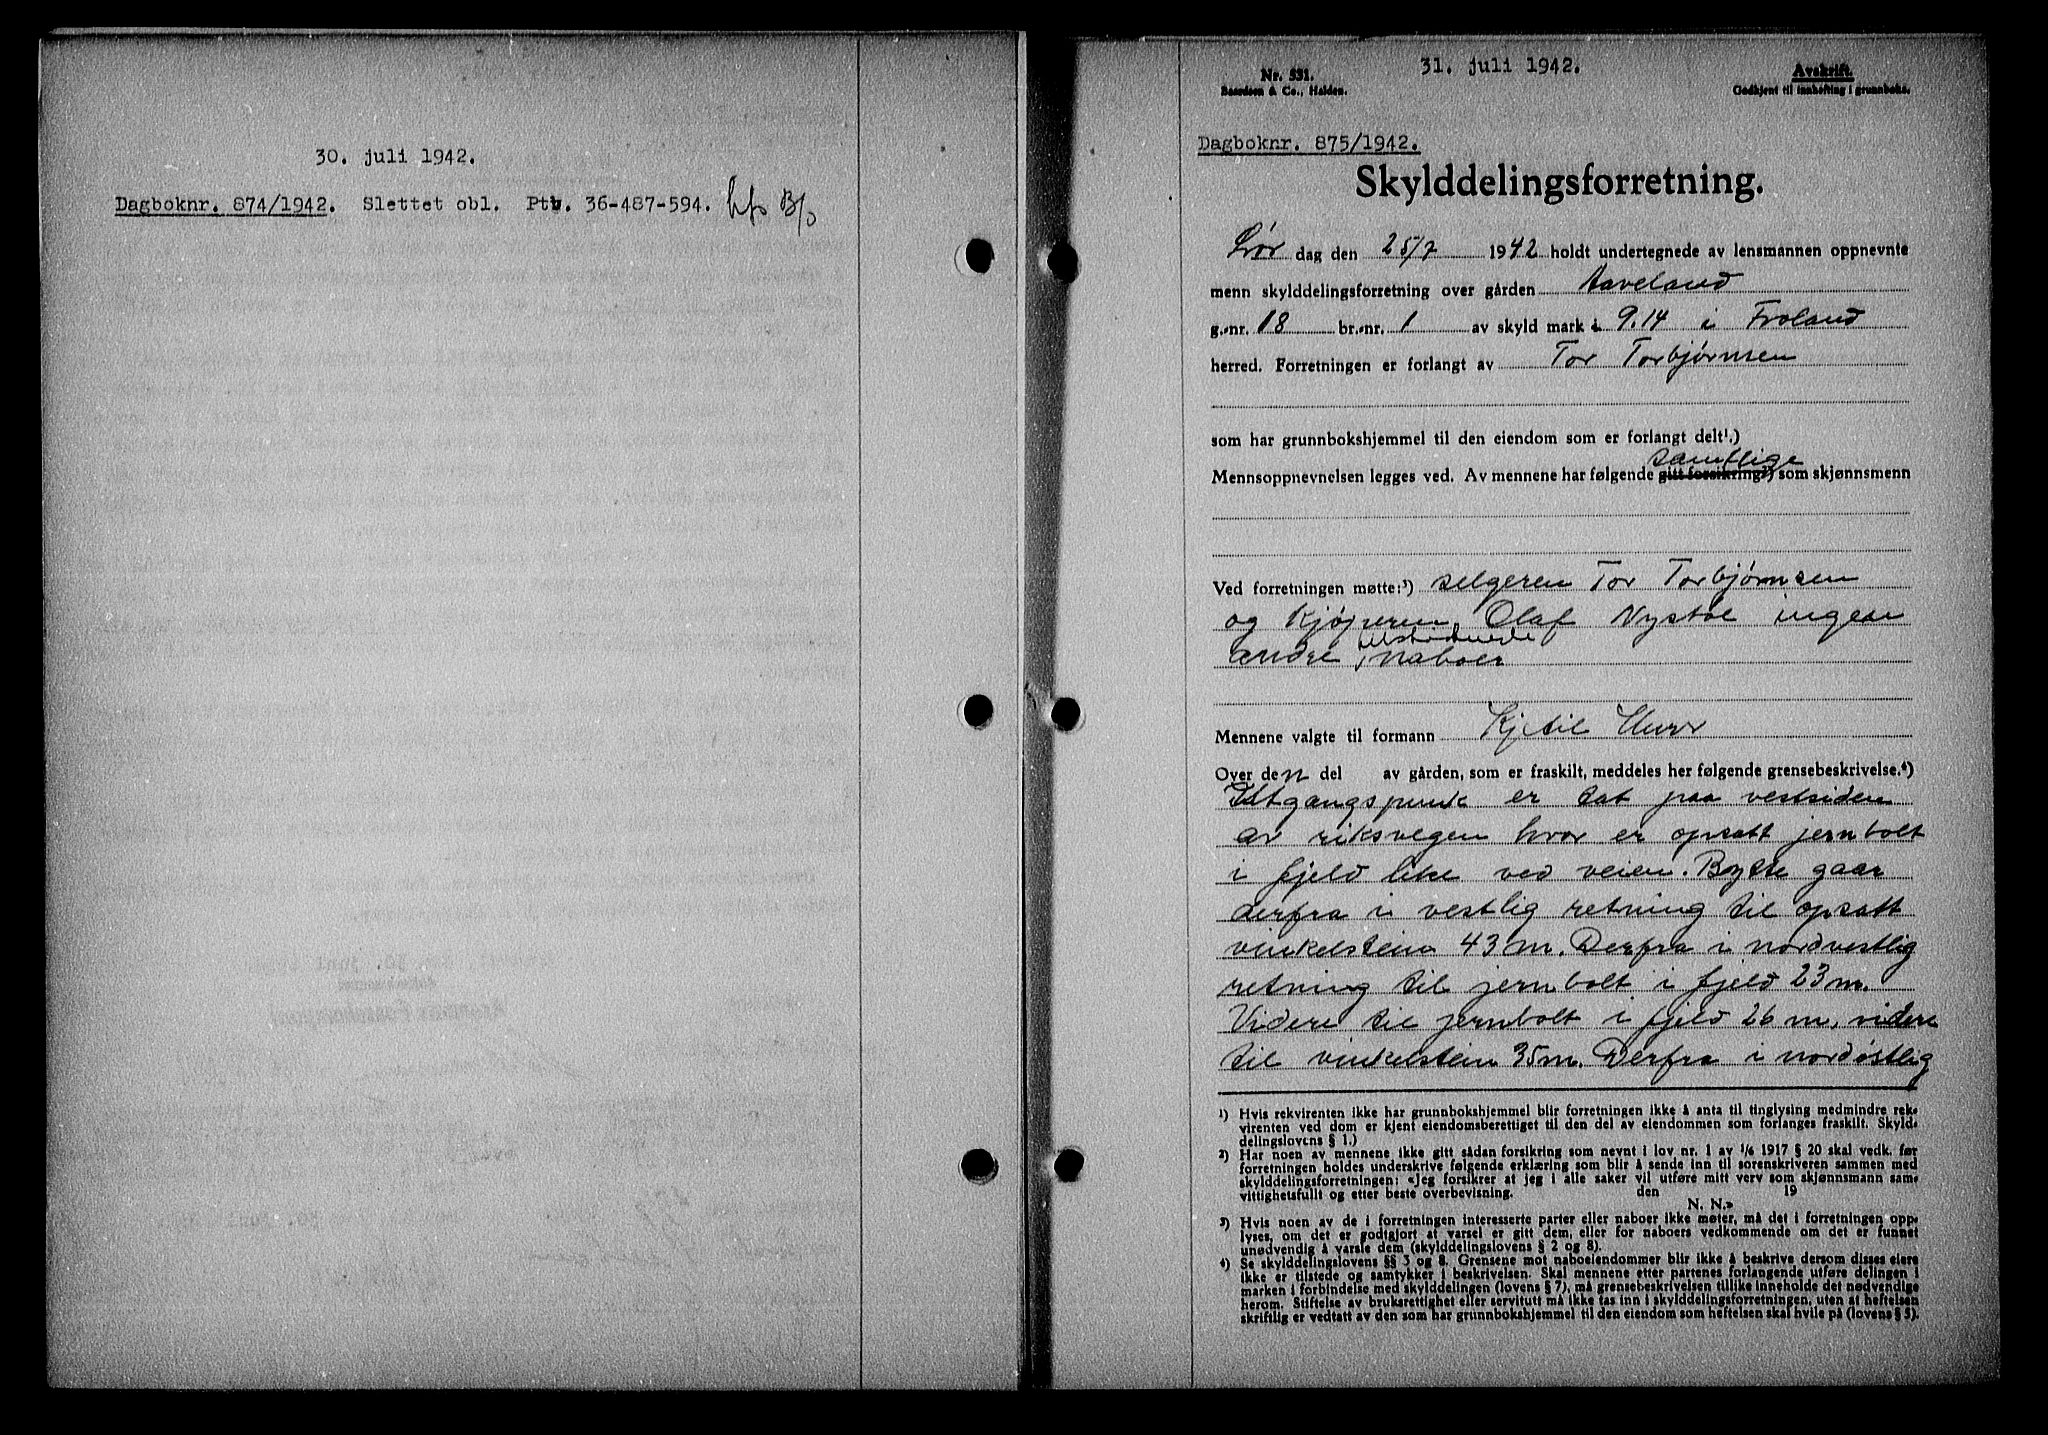 30. juli 1942.
Dagboknr. 874/1942. Slettet obl. Ptb. 36-487-594.
31. juli 1942.
Nr. 531.
Baardsen & Co., Halden.
Avskrift.
Godkjent til innhefting i grunnboka.
Dagboknr. 875/1942.
Skylddelingsforretning.
Lør dag den 25/7 1942 holdt undertegnede av lensmannen oppnevnte
menn skylddelingsforretning over gården Aaveland
g.-nr. 18 br.-nr. 1 av skyld mark 9.14 i Froland
herred. Forretningen er forlangt av Tor Torbjørnsen
som har grunnbokshjemmel til den eiendom som er forlangt delt¹.)
samtlige
Mennsoppnevnelsen legges ved. Av mennene har følgende gitt forsikring²) som skjønnsmenn
Ved forretningen møtte:³) selgeren Tor Torbjørnsen
og Kjøperen Olaf Nystøl ingen
tilstødende
andre naboer
Mennene valgte til formann Kjetil
Over den del av gården, som er fraskilt, meddeles her følgende grensebeskrivelse.⁴)
Utgangspunk er tat paa vestsiden
av riksvegen hvor er opsatt jernbolt
i fjeld like ved veien. Bytte gaar
derfra i vestlig retning til opsatt
vinkelstein 43 m. Derfra i nordvestlig
retning til jernbolt i fjeld 23 m.
Videre til jernbolt i fjeld 26 m, videre
til vinkelstein 35 m. Derfra i nordøstlig
¹) Hvis rekvirenten ikke har grunnbokshjemmel blir forretningen ikke å anta til tinglysing medmindre rek-
virenten ved dom er kjent eiendomsberettiget til den del av eiendommen som forlanges fraskilt. Skyld-
delingslovens § 1.)
²) Har noen av mennene ikke gitt sådan forsikring som nevnt i lov nr. 1 av 1/6 1917 § 20 skal vedk. før
forretningen holdes underskrive følgende erklæring som blir å sende inn til sorenskriveren sammen med
skylddelingsforretningen: «Jeg forsikrer at jeg i alle saker vil utføre mitt verv som skjønnsmann sam-
vittighetsfullt og etter beste overbevisning. den 19
N. N.»
³) Hvis noen av de i forretningen interesserte parter eller naboer ikke møter, må det i forretningen opp-
lyses, om det er godtgjort at varsel er gitt dem, eller for naboers vedkommende om det er funnet
unødvendig å varsle dem (skylddelingslovens § 2 og 8).
⁴) Se skylddelingslovens §§ 3 og 8. Grensene mot naboeiendommer blir ikke å beskrive dersom disses eiere
ikke er tilstede og samtykker i beskrivelsen. Skal mennene etter partenes forlangende utføre delingen i
marken i forbindelse med skylddelingen (lovens § 7), må grensebeskrivelsen tillike inneholde det nødvendige
herom. Stiftelse av bruksrettighet eller servitutt må ikke tas inn i skylddelingsforretningen, uten at heftelsen
skriftlig er vedtatt av den som har grunnbokshjemmel til den eiendom som heftelsen skal hvile på (lovens § 5).